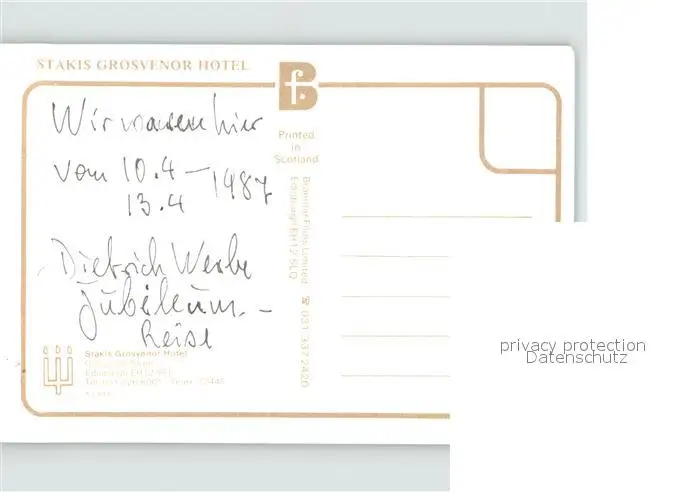 STAKIS GROSVENOR HOTEL
Wir waren hier
vom 10.4 – 1987
13.4
Dietrich Werbe
Jubiläum -
Reise
Stakis Grosvenor Hotel
Edinburgh EH12
Printed
in
Scotland
Limited
Edinburgh EH12 5LQ
031 337 2420
privacy protection
Datenschutz